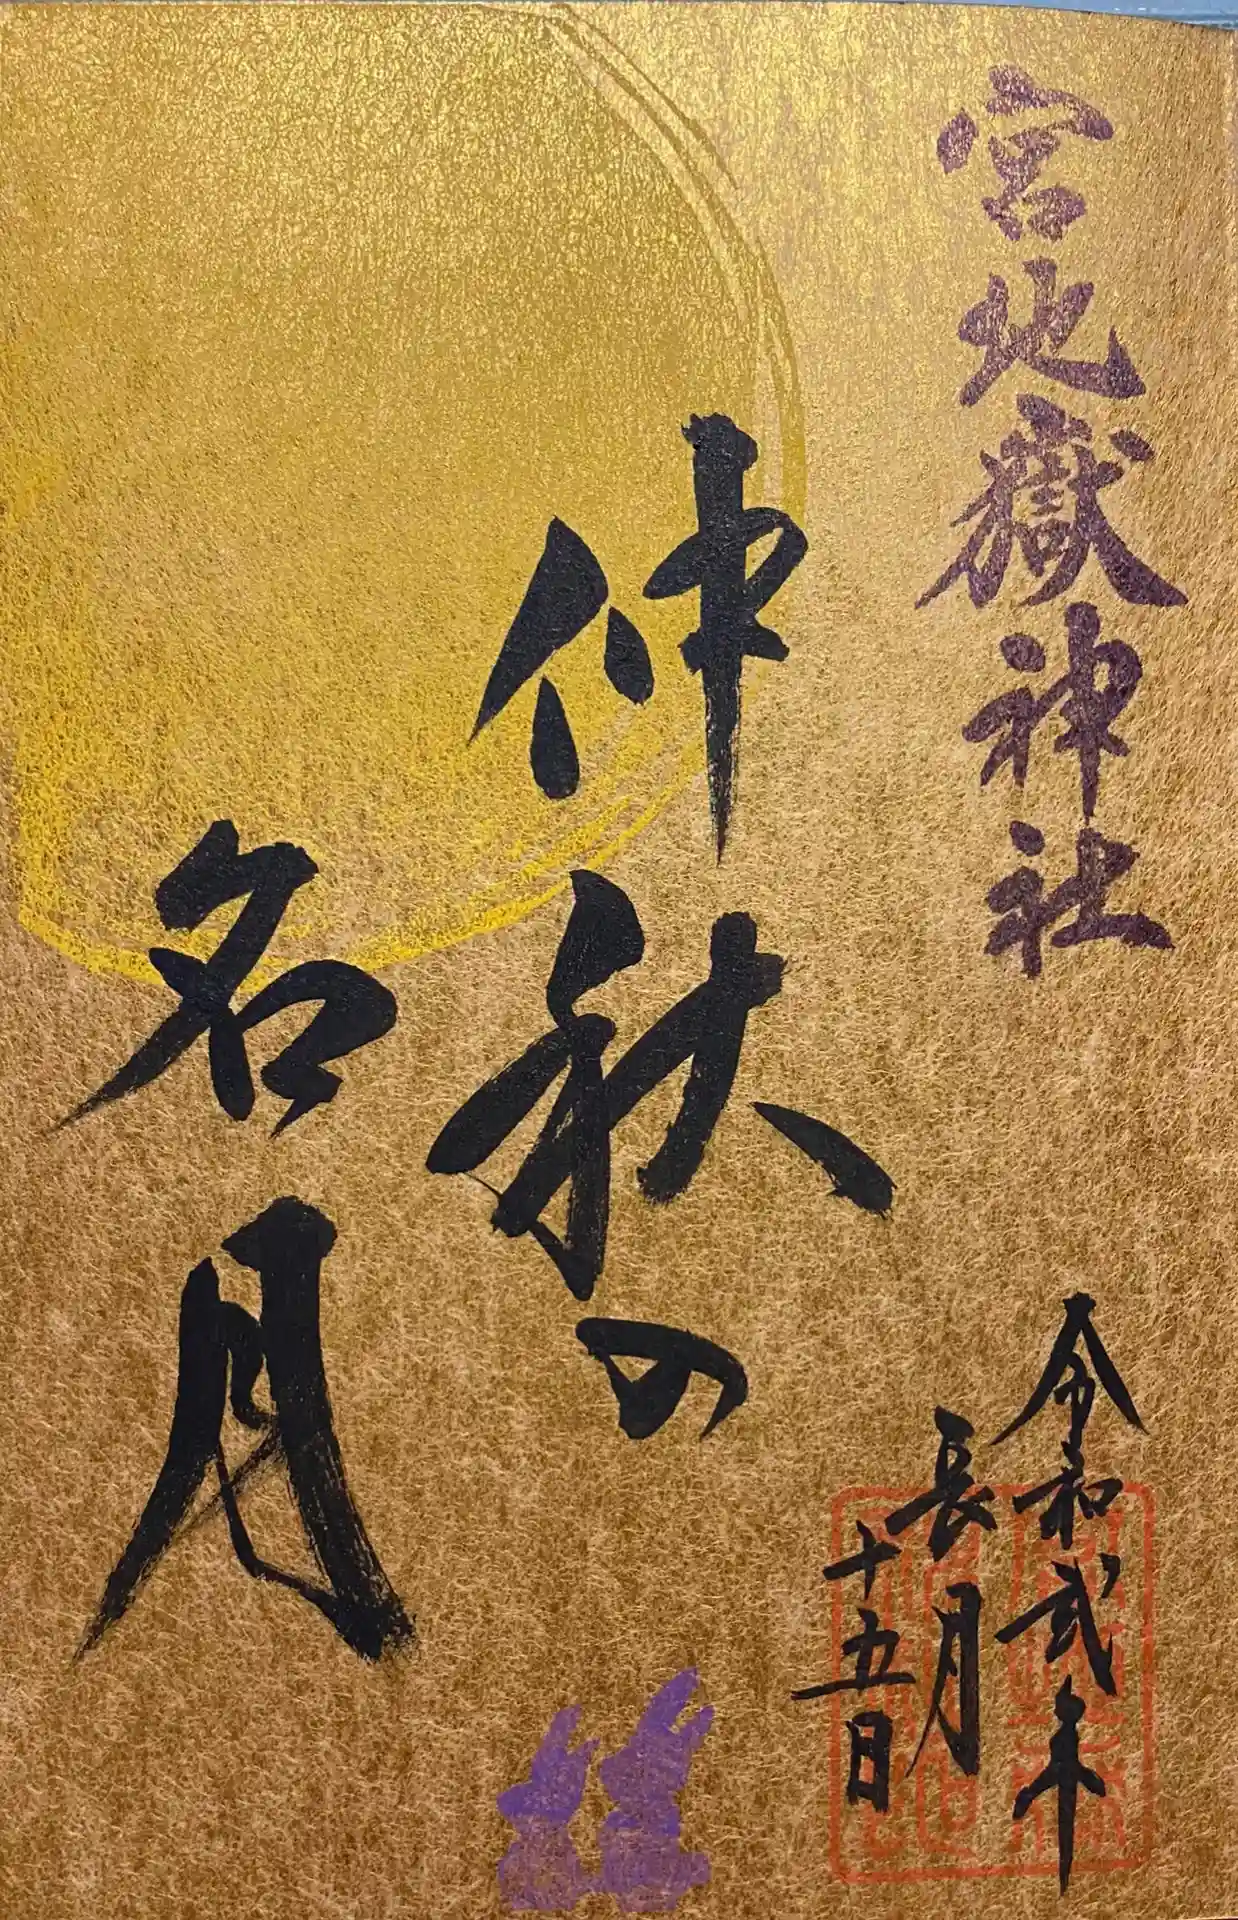 宮地嶽神社
仲秋の
名月
令和貮年
長月
十五日